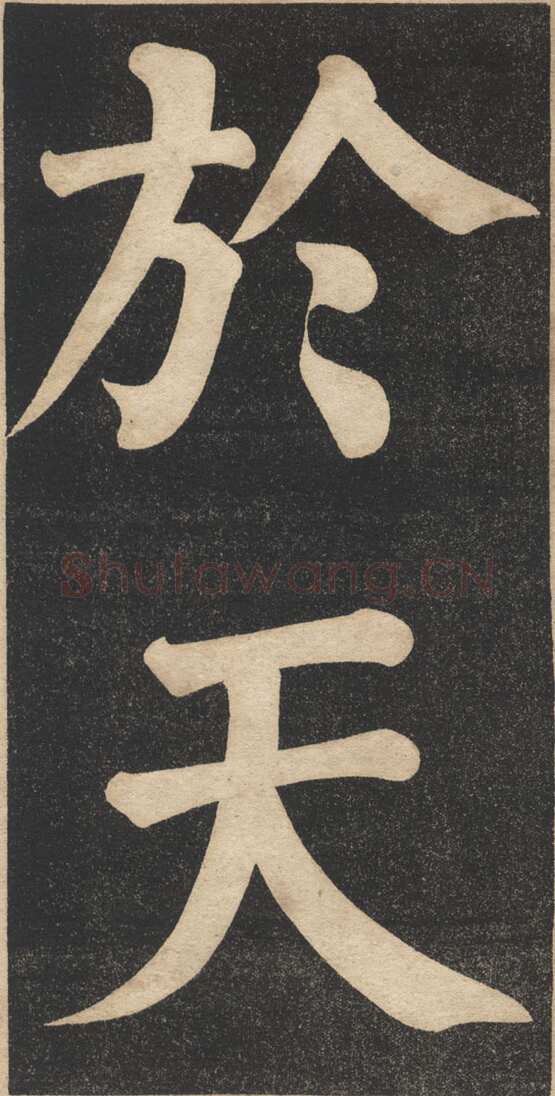 於天
Shufawang.CN